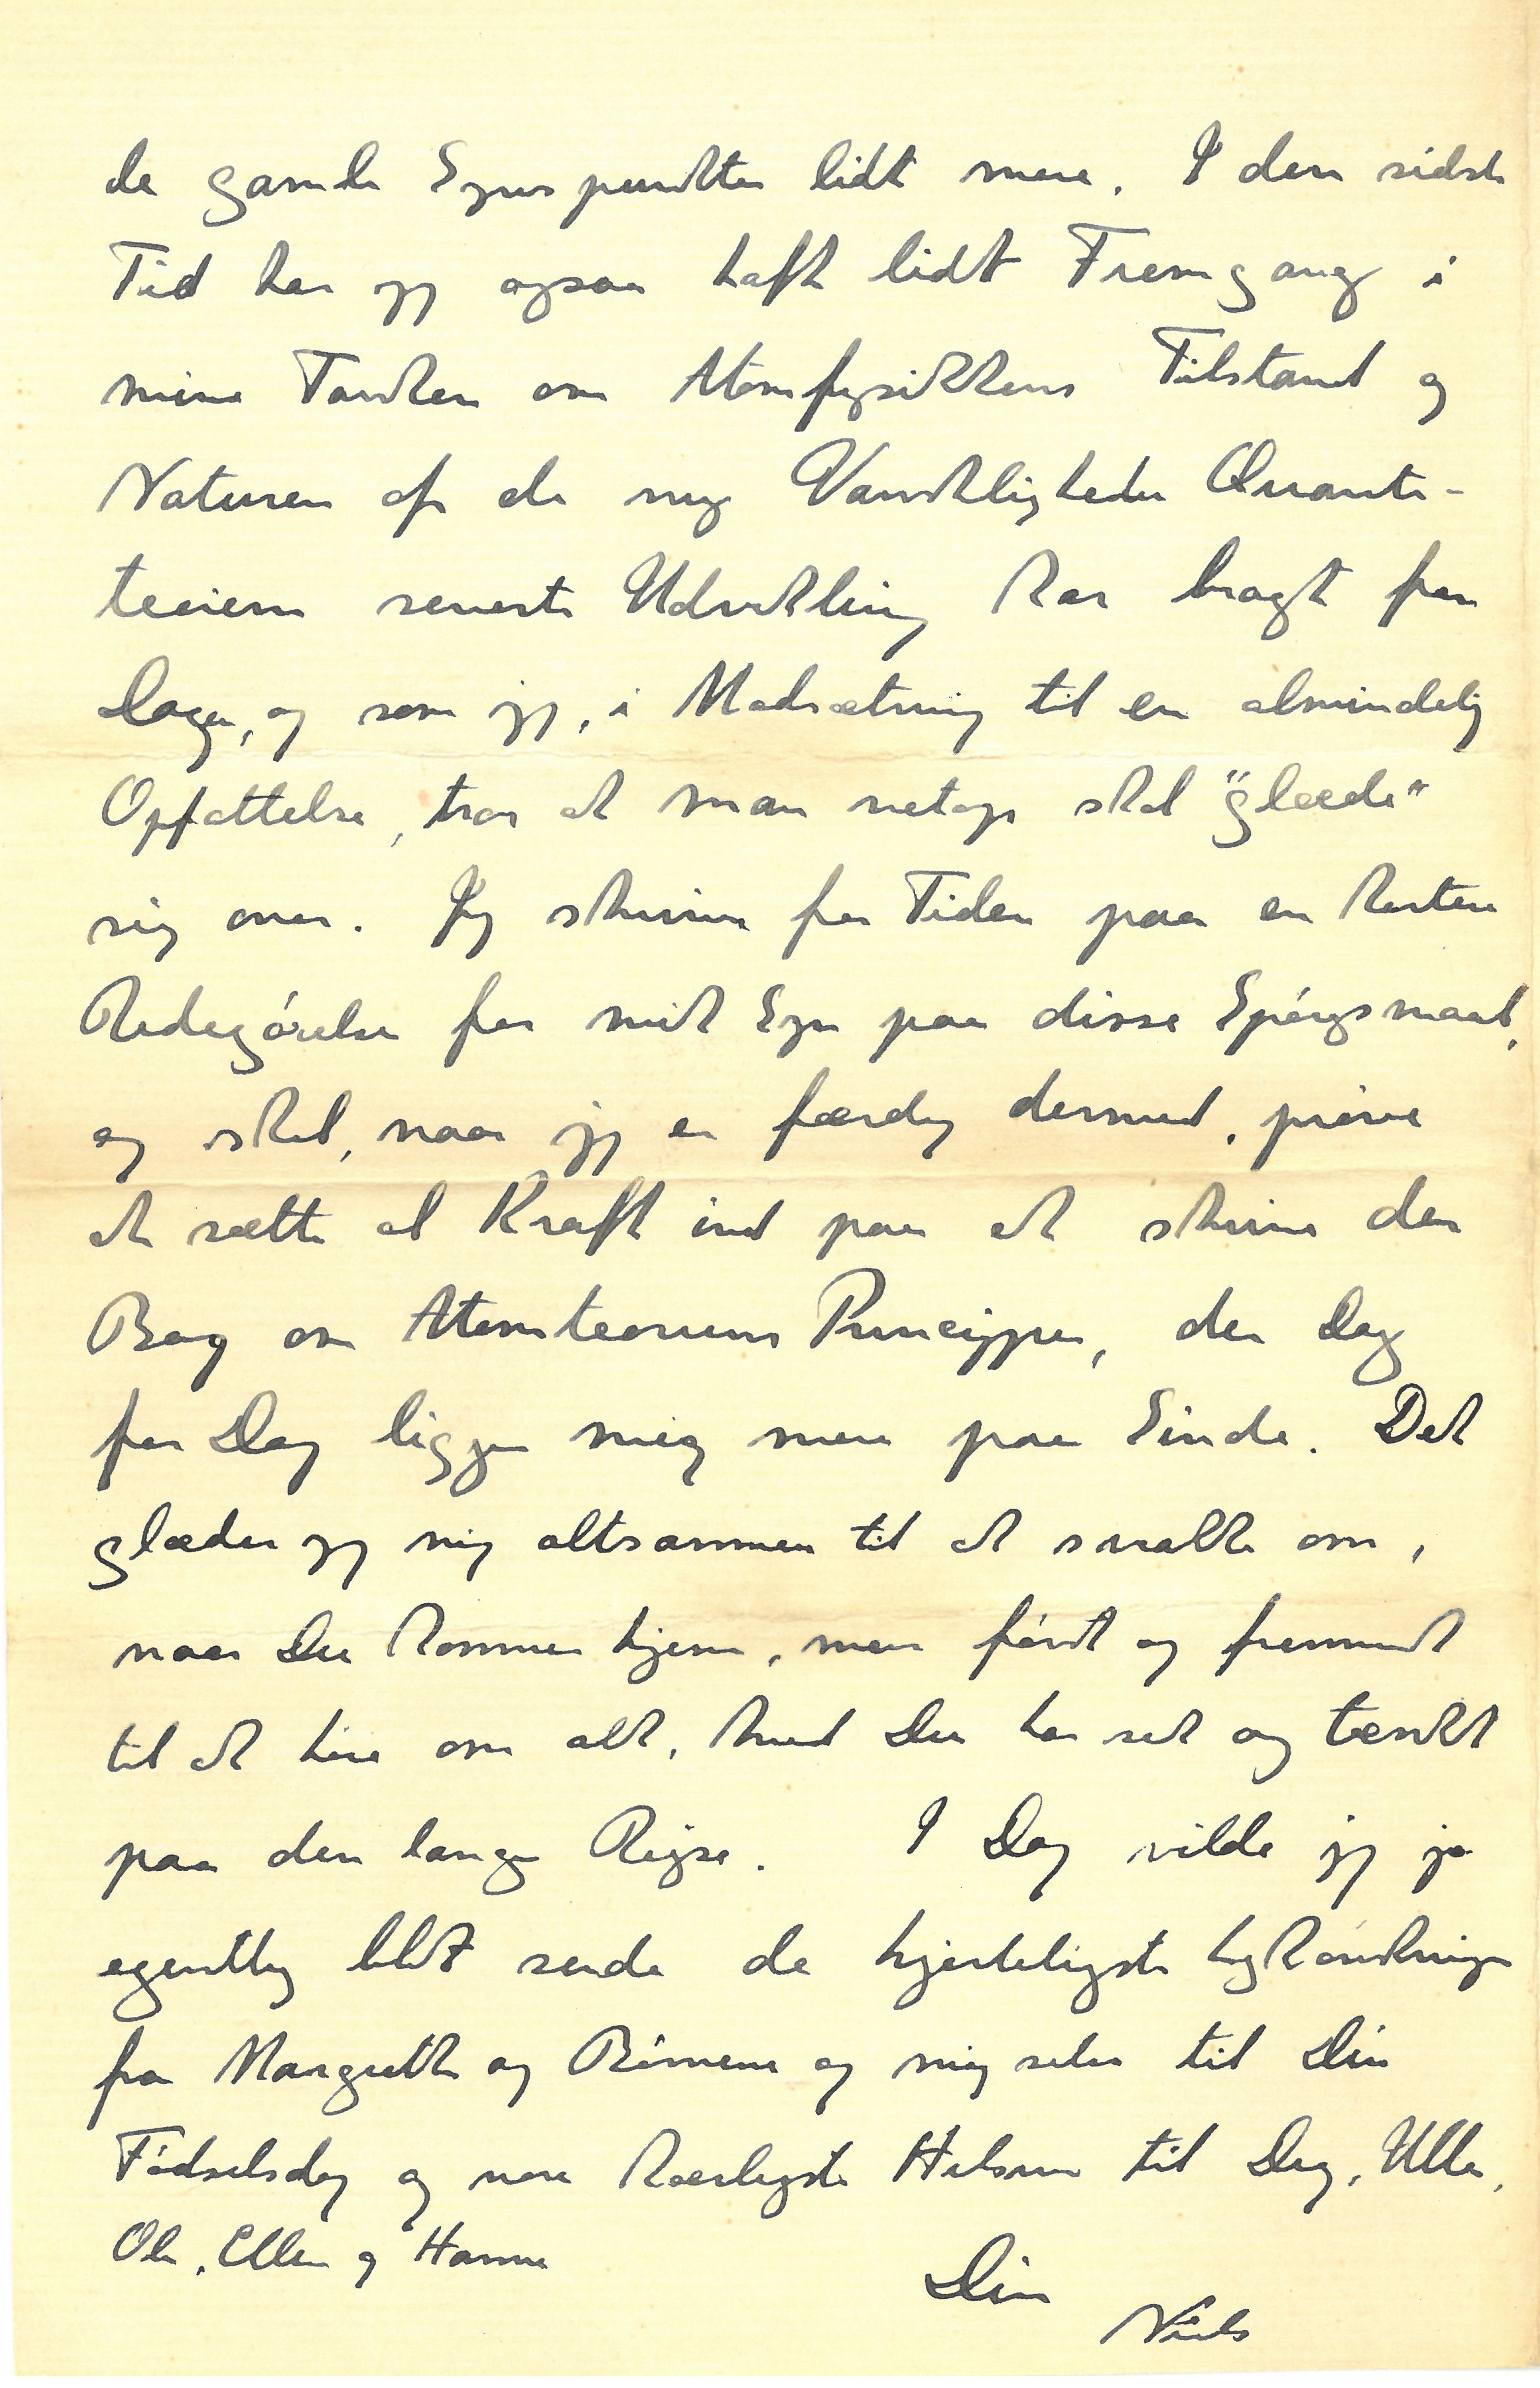 de gamle Synspunkter lidt mere. I den sidste
Tid har jeg ogsaa haft lidt Fremgang i
mine Tanker om Atomfysikkens Tilstand og
Naturen af de nye Vanskligheder Quante-
teoriens seneste Udvikling har bragt for
Dagen, og som jeg, i Modsætning til en almindelig
Opfattelse, tror at man netop skal "glæde"
sig over. Jeg skriver for Tiden paa en kortere
Redegørelse for mit Syn paa disse Spørgsmaal,
og skal, naar jeg er færdig dermed, prøve
at sætte al Kraft ind paa at skrive den
Bog om Atomteoriens Principper, der Dag
for Dag ligger mig mere paa Sinde. Det
glæder jeg mig altsammen til at snakke om,
naar Du kommer hjem, men først og fremmest
til at høre om alt, hvad Du har set og tænkt
paa den lange Rejse. I Dag vilde jeg jo
egentlig blot sende de hjerteligste Lykønskninger
fra Margrethe og Børnene og mig selv til Din
Fødselsdag og vore kærligste Hilsner til Dig, Ulla,
Ole, Ellen og Hanne
Din
Niels